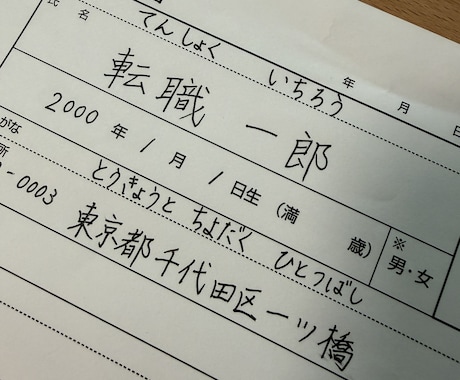 てんしょく いちろう 年 月 日
氏名 転職 一郎
2000 年 1 月 1 日生 (満 歳) ※ 男・女
がな とうきょうと ちよだく ひとつばし
所 -0003
東京都千代田区一ツ橋